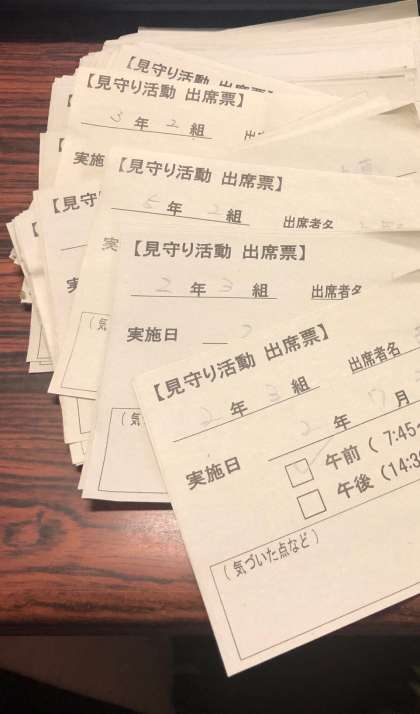 【見守り活動 出席票】
【見守り活動 出席票】
3年 2組
実施
【見守り活動 出席票】
5年 2組 出席者名
【見守
実
【見守り活動 出席票】
2年 3組 出席者名
実施日 2
(気
(気
【見守り活動 出席票】
2年 3組 出席者名
実施日 2年 月
午前( 7:45~
午後(14:3
(気づいた点など)